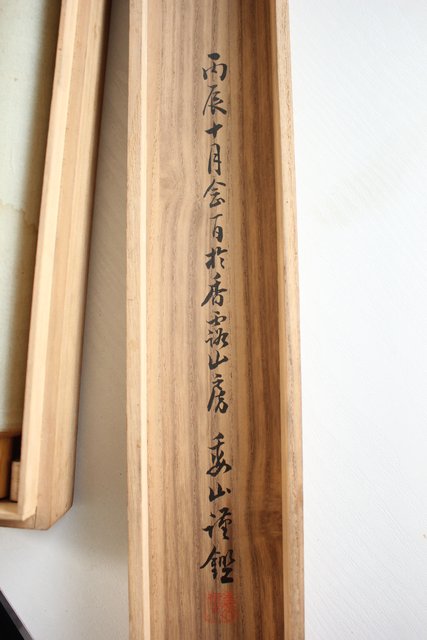 丙辰十月念一日於香露山房 山謹鑑